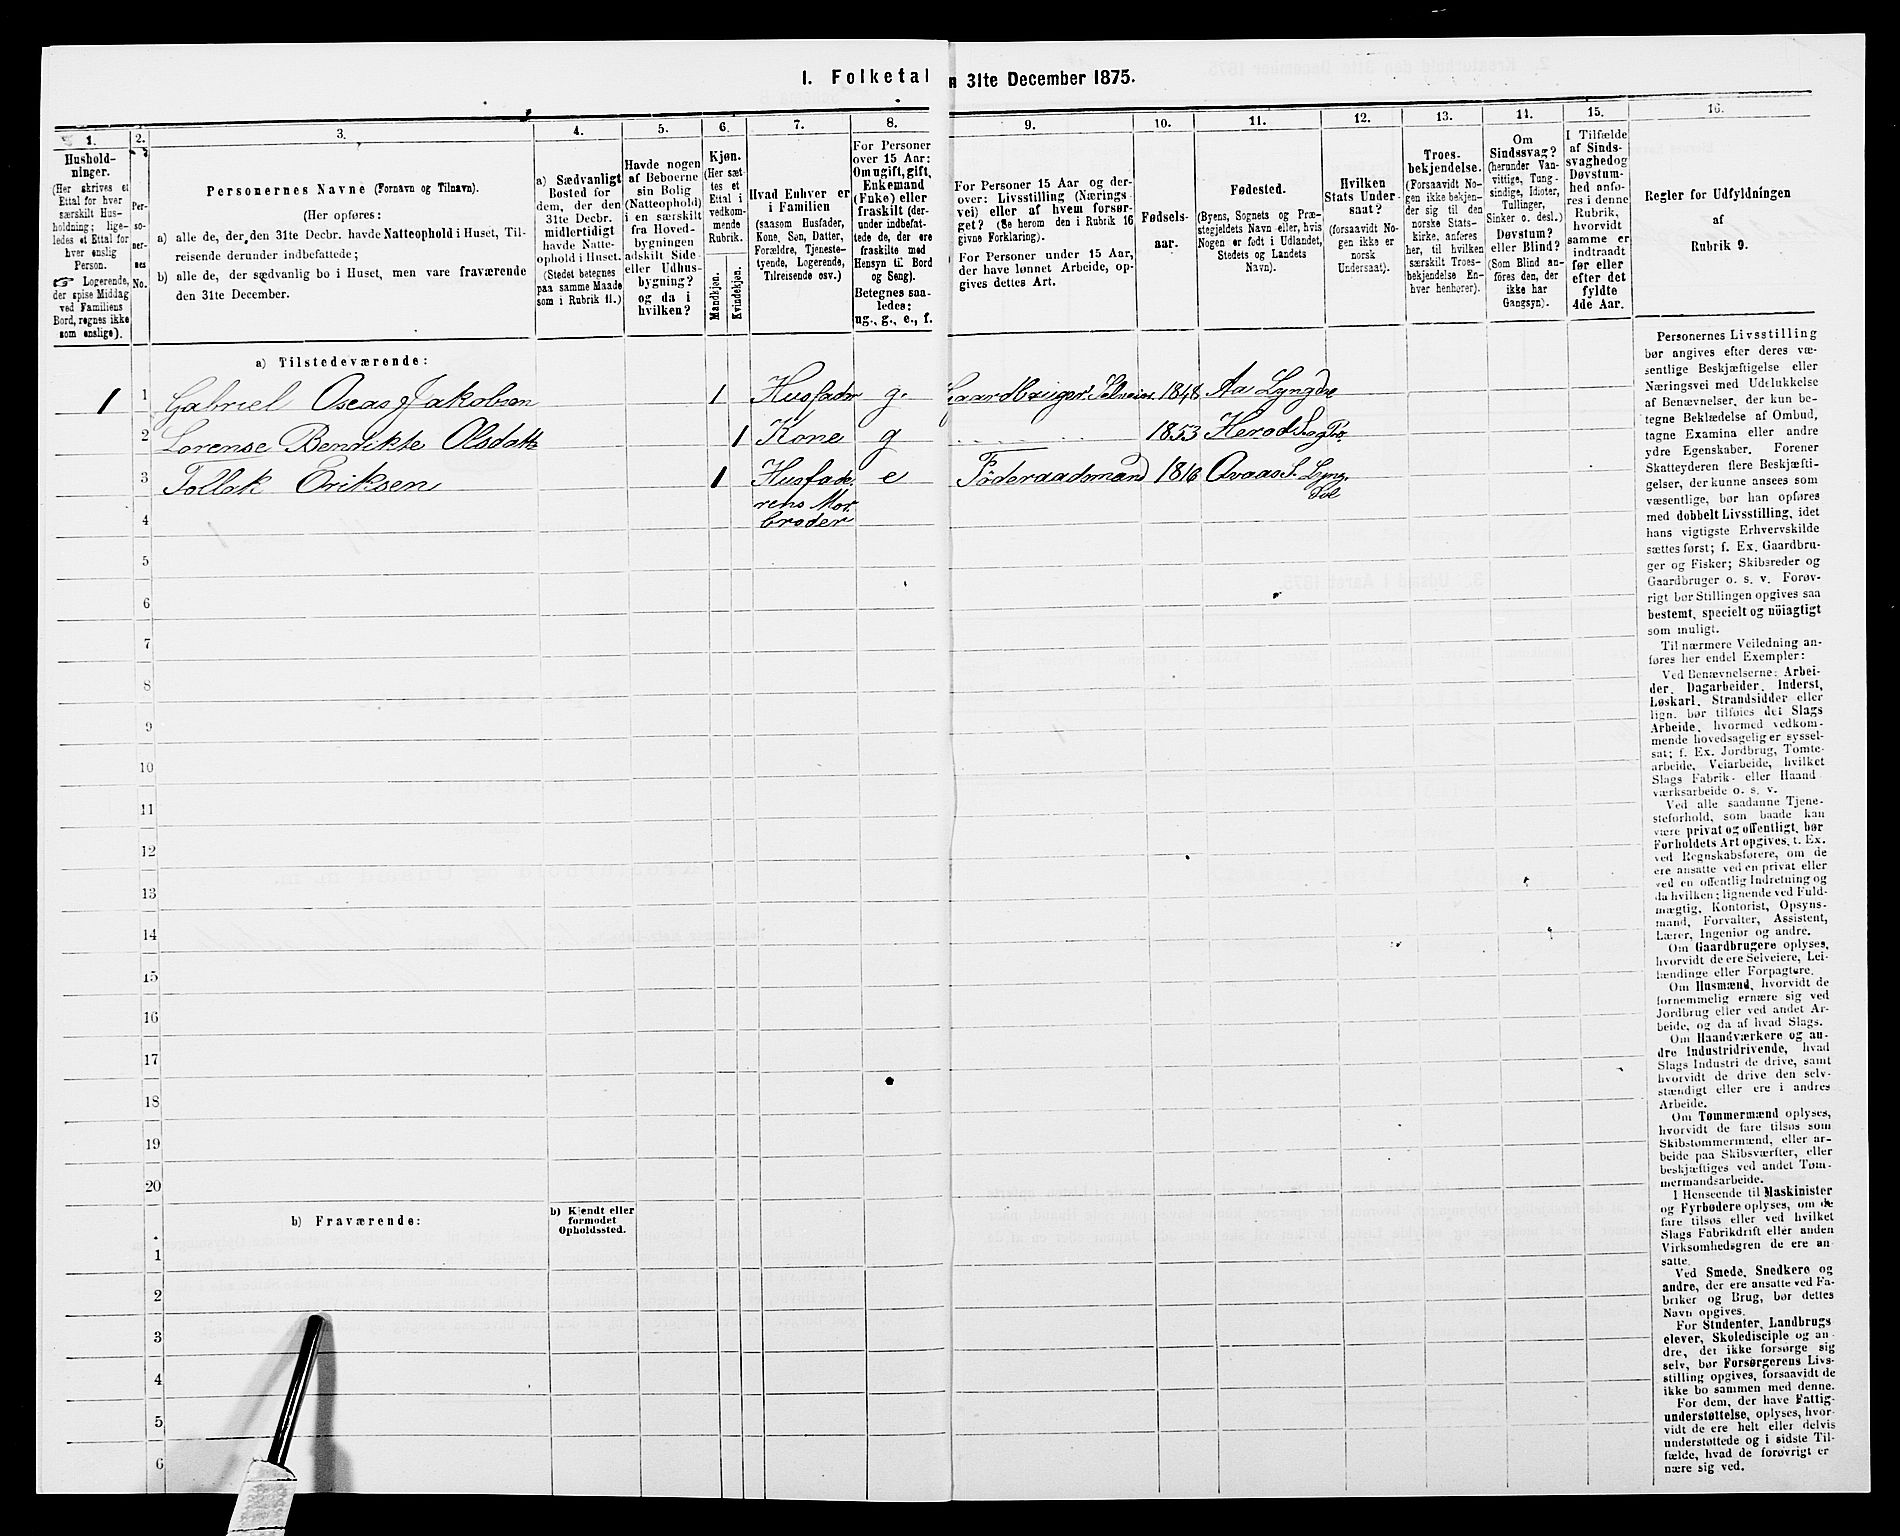 I. Folketal
n 31te December 1875.
1.
2.
3.
4.
5.
6.
7.
8.
9.
10.
11.
12.
13.
14.
15.
16.
Hushold-
ninger.
(Her skrives et
Ettal for hver
særskilt Hus-
holdning; lige-
ledes et Ettal for
hver enslig
Person.
☞ Logerende,
der spise Middag
ved Familiens
Bord, regnes ikke
som enslige).
Per-
so-
ner-
nes
No.
Personernes Navne (Fornavn og Tilnavn).
(Her opføres:
a) alle de, der den 31te Decbr. havde Natteophold i Huset, Til-
reisende derunder indbefattede;
b) alle de, der sædvanlig bo i Huset, men vare fraværende
den 31te December.
a) Sædvanligt
Bosted for
dem, der den
31te Decbr.
midlertidigt
havde Natte-
ophold i Huset.
(Stedet betegnes
paa samme Maade
som i Rubrik 11.)
Havde nogen
af Beboerne
sin Bolig
(Natteophold)
i en særskilt
fra Hoved-
bygningen
adskilt Side-
eller Udhus-
bygning?
og da i
hvilken?
Kjøn.
(Her sæt-
tes et
Ettal i
vedkom-
mende
Rubrik.
Mandkjøn.
Kvindekjøn.
Hvad Enhver er
i Familien
(saasom Husfader,
Kone, Søn, Datter,
Forældre, Tjeneste-
tyende, Logerende,
Tilreisende osv.)
For Personer
over 15 Aar:
Om ugift, gift,
Enkemand
(Enke) eller
fraskilt (der-
under indbefat-
tede de, der ere
fraskilte med
Hensyn til Bord
og Seng).
Betegnes saa-
ledes:
ug., g., e., f.
For Personer 15 Aar og der-
over: Livsstilling (Nærings-
vei) eller af hvem forsør-
get? (Se herom den i Rubrik 16
givne Forklaring).
For Personer under 15 Aar,
der have lønnet Arbeide, op-
gives dettes Art.
Fødsels-
aar.
Fødested.
(Byens, Sognets og Præ-
stegjeldets Navn eller, hvis
Nogen er født i Udlandet,
Stedets og Landets
Navn).
Hvilken
Stats Under-
saat?
(forsaavidt No-
gen ikke er
norsk
Undersaat).
Troes-
bekjendelse.
(Forsaavidt No-
gen ikke bekjen-
der sig til den
norske Stats-
kirke, anføres
her, til hvilken
særskilt Troes-
bekjendelse En-
hver henhører).
Om
Sindssvag?
(herunder Van-
vittige, Tung-
sindige, Idioter,
Tullinger,
Sinker o. desl.)
Døvstum?
eller Blind?
(Som Blind an-
føres den, der
ikke har
Gangsyn).
I Tilfælde
af Sinds-
svaghed og
Døvstum-
hed anfø-
res i denne
Rubrik,
hvorvidt
samme er
indtraadt
før eller
efter det
fyldte
4de Aar.
Regler for Udfyldningen
af
Rubrik 9.
a) Tilstedeværende:
1 1 Gabriel Oseas Jakobsen 1 Husfader g. Gaardbruger Selveier 1848 Aa Lyngdal
2 Lorense Bendikte Olsdatter 1 Kone g 1853 Herod
3 Tollak Eriksen 1 Husfade- e Føderaadsmand 1816 Lyng-
rens Mor-
dal
4 broder
5
6
7
8
9
10
11
12
13
14
15
16
17
18
19
20
b) Fraværende:
b) Kjendt eller
formodet
Opholdssted.
1
2
3
4
5
6
Personernes Livsstilling
bør angives efter deres væ-
sentlige Beskjæftigelse eller
Næringsvei med Udelukkelse
af Benævnelser, der kun be-
tegne Beklædelse af Ombud,
tagne Examina eller andre
ydre Egenskaber. Forener
Skatteyderen flere Beskjæfti-
gelser, der kunne ansees som
væsentlige, bør han opføres
med dobbelt Livsstilling, idet
hans vigtigste Erhvervskilde
sættes først; f. Ex. Gaardbru-
ger og Fisker; Skibsreder og
Gaardbruger o. s. v. Forøv-
rigt bør Stillingen opgives saa
bestemt, specielt og nöiagtigt
som muligt.
Til nærmere Veiledning an-
føres her endel Exempler:
Ved Benævnelserne: Arbei-
der, Dagarbeider, Inderst,
Løskarl, Strandsidder eller
lign. bør tilføies det Slags
Arbeide, hvormed vedkom-
mende hovedsagelig er syssel-
sat; f. Ex. Jordbrug, Tomte-
arbeide, Veiarbeide, hvilket
Slags Fabrik- eller Haand-
værksarbeide o. s. v.
Ved alle saadanne Tjene-
steforhold, som baade kan
være privat og offentligt, bør
Forholdets Art opgives, f. Ex.
ved Regnskabsførere, om de
ere ansatte ved en privat eller
ved en offentlig Indretning og
da hvilken; lignende ved Fuld-
mægtig, Kontorist, Opsyns-
mand, Forvalter, Assistent,
Lærer, Ingeniør og andre.
Om Gaardbrugere oplyses,
hvorvidt de ere Selveiere, Lei-
lændinge eller Forpagtere.
Om Husmænd, hvorvidt de
fornemmelig ernære sig ved
Jordbrug eller ved andet Ar-
beide, og da af hvad Slags.
Om Haandværkere og an-
dre Industridrivende, hvad
Slags Industri de drive, samt
hvorvidt de drive den selv-
stændigt eller ere i andres
Arbeide.
Om Tømmermænd oplyses,
hvorvidt de fare tilsøs som
Skibstømmermænd, eller ar-
beide paa Skibsværfter, eller
beskjæftiges ved andet Tøm-
mermandsarbeide.
I Henseende til Maskinister
og Fyrbødere oplyses, om de
fare tilsøs eller ved hvilket
Slags Fabrikdrift eller anden
Virksomhedsgren de ere an-
satte.
Ved Smede, Snedkere og
andre, der ere ansatte ved Fa-
briker og Brug, bør dettes
Navn opgives.
For Studenter, Landbrugs-
elever, Skoledisciple og an-
dre, det ikke forsørge sig
selv, bør Forsørgerens Livs-
stilling opgives, forsaavidt de
ikke bo sammen med denne.
For dem, der have Fattig-
understøttelse, oplyses, hvor-
vidt de ere helt eller delvis
understøttede og i sidste Til-
fælde, hvad de forøvrigt er
nære sig ved.